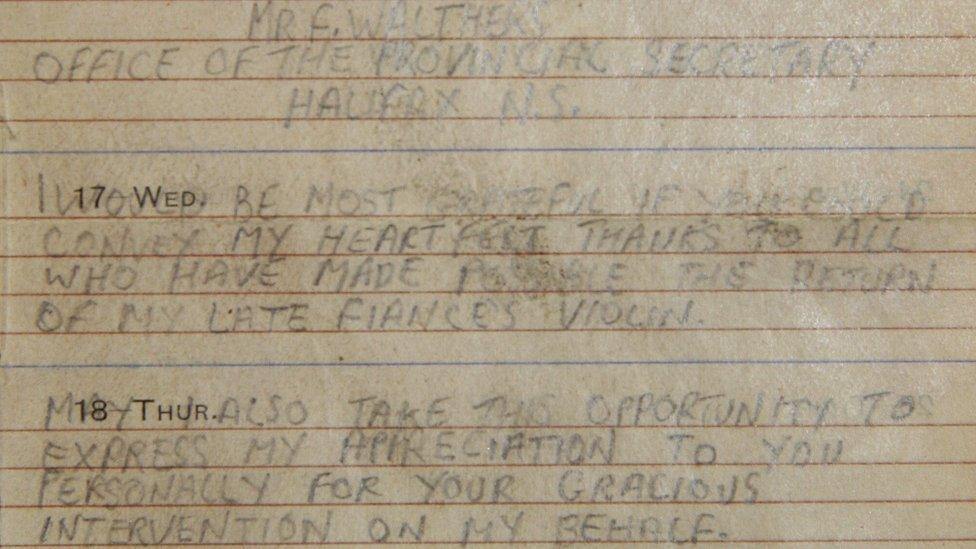 MR F. WALTHERS
OFFICE OF THE PROVINCIAL SECRETARY
HALIFAX N.S.
17 WED.
I WOULD BE MOST GRATEFUL IF YOU COULD
CONVEY MY HEARTFELT THANKS TO ALL
WHO HAVE MADE POSSIBLE THE RETURN
OF MY LATE FIANCE'S VIOLIN.
18 THUR.
MAY I ALSO TAKE THIS OPPORTUNITY TO
EXPRESS MY APPRECIATION TO YOU
PERSONALLY FOR YOUR GRACIOUS
INTERVENTION ON MY BEHALF.